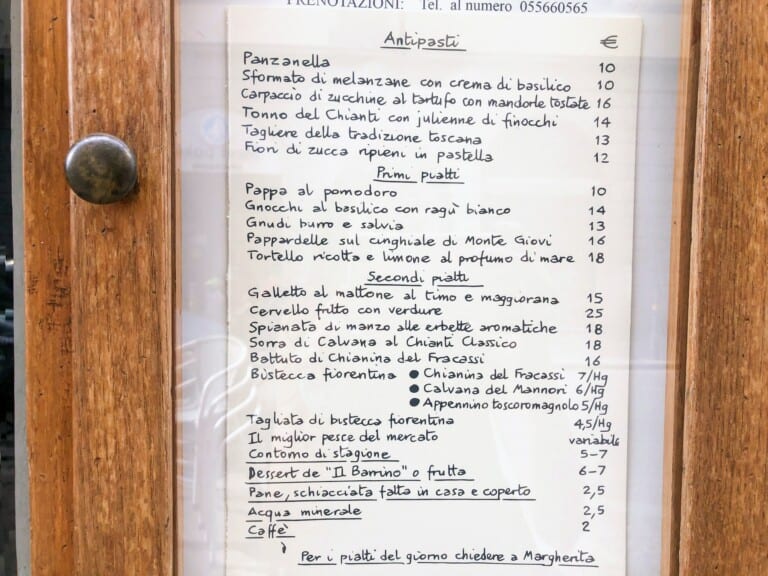 PRENOTAZIONI: Tel. al numero 055660565
Antipasti €
Panzanella 10
Sformato di melanzane con crema di basilico 10
Carpaccio di zucchine al tartufo con mandorle tostate 16
Tonno del Chianti con julienne di finocchi 14
Tagliere della tradizione toscana 13
Fiori di zucca ripieni in pastella 12
Primi piatti
Pappa al pomodoro 10
Gnocchi al basilico con ragù bianco 14
Gnudi burro e salvia 13
Pappardelle sul cinghiale di Monte Giovi 16
Tortello ricotta e limone al profumo di mare 18
Secondi piatti
Galletto al mattone al timo e maggiorana 15
Cervello fritto con verdure 25
Spianata di manzo alle erbette aromatiche 18
Sorra di Calvana al Chianti Classico 18
Battuto di Chianina del Fracassi 16
Bistecca fiorentina • Chianina del Fracassi 7/Hg
• Calvana del Mannori 6/Hg
• Appennino toscoromagnolo 5/Hg
Tagliata di bistecca fiorentina 4,5/Hg
Il miglior pesce del mercato variabile
Contorno di stagione 5-7
Dessert de "Il Barrino" o frutta 6-7
Pane, schiacciata fatta in casa e coperto 2,5
Acqua minerale 2,5
Caffè 2
Per i piatti del giorno chiedere a Margherita